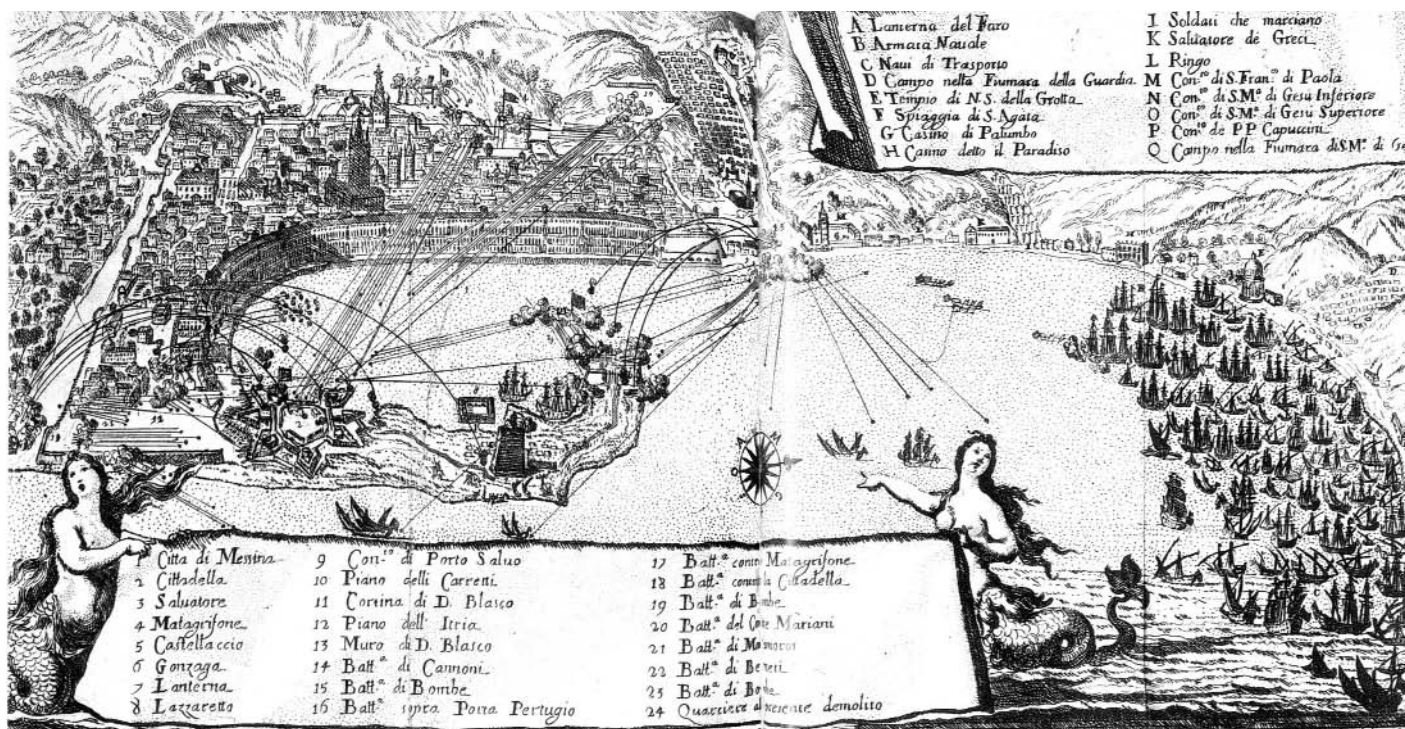 A Lanterna del Faro
B Armata Nauale
C Naui di Trasporto
D Campo nella Fiumara della Guardia
E Tempio di N.S. della Grotta
F Spiaggia di S. Agata
G Casino di Palumbo
H Casino detto il Paradiso
I Soldati che marciano
K Saluatore de Greci
L Ringo
M Con.to di S. Fran.co di Paola
N Con.to di S.Ma. di Gesu Inferiore
O Con.to di S.Ma. di Gesu Superiore
P Con.to de PP Capuccini
Q Campo nella Fiumara di S.Ma. di
1 Citta di Messina
2 Cittadella
3 Saluatore
4 Matagrifone
5 Castellaccio
6 Gonzaga
7 Lanterna
8 Lazzaretto
9 Con.to di Porto Saluo
10 Piano delli Carreti
11 Cortina di D. Blasco
12 Piano dell' Itria
13 Muro di D. Blasco
14 Batt.a di Cannoni
15 Batt.a di Bombe
16 Batt.a sopra Porta Pertugio
17 Batt.a contro Matagrifone
18 Batt.a contro la Cittadella
19 Batt.a di Bombe
20 Batt.a del Mariani
21 Batt.a di
22 Batt.a di
23 Batt.a di
24 Quartiere al presente demolito